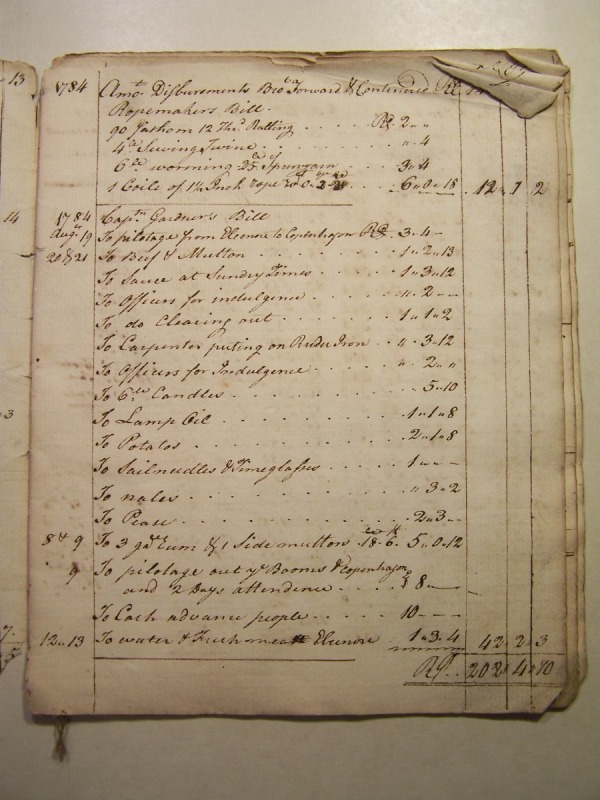 13
1784 Amot. Disbursements Brot. Forward & Continued RD
Ropemakers Bill.
90 fathom 12 Thd. Ratling . . . . RD. 2 " "
4 lb Sewing Twine . . . . . " 4
6 do worming 25 lb of Spunyarn . . . 3 " 4
1 Coile of 1¼ Inch rope . . . 6 " 0 " 18 12 " 1 " 2
14
1784 Captn. Gardner's Bill
Augt. 19 To pilotage from Elsenore to Copenhagen RD. 3 " 4 -
20 & 21 To Beef & Mutton . . . . . 1 " 2 " 13
To Sauce at Sundry Times . . . . 1 " 3 " 12
To Officers for indulgence . . . . " 2 - -
To do Clearing out . . . . . 1 " 1 " 2
To Carpenter puting on Ruder Iron . . " 3 " 12
To Officers for Indulgence . . . . " 2 " "
To 6 lb Candles . . . . . " 5 " 10
To Lamp Oil . . . . . 1 " 1 " 8
To Potatos . . . . . 2 " 1 " 8
To Sailneedles & Timeglasses . . . . 1 " - -
To nales . . . . . " 3 " 2
3
To Pease . . . . . 2 " 3 -
8 & 9 To 3 gd Rum & 1 Side mutton 18 . 6 . 5 " 0 " 12
9 To pilotage out ye Booms & Copenhagen
and 2 Days attendence . . . . 8 -
7
To Cash advance people . . . . 10 - -
5
12 " 13 To water & Fresh meat Elsenore 1 " 3 " 4 42 " 2 " 3
RD. . 202 " 4 " 10